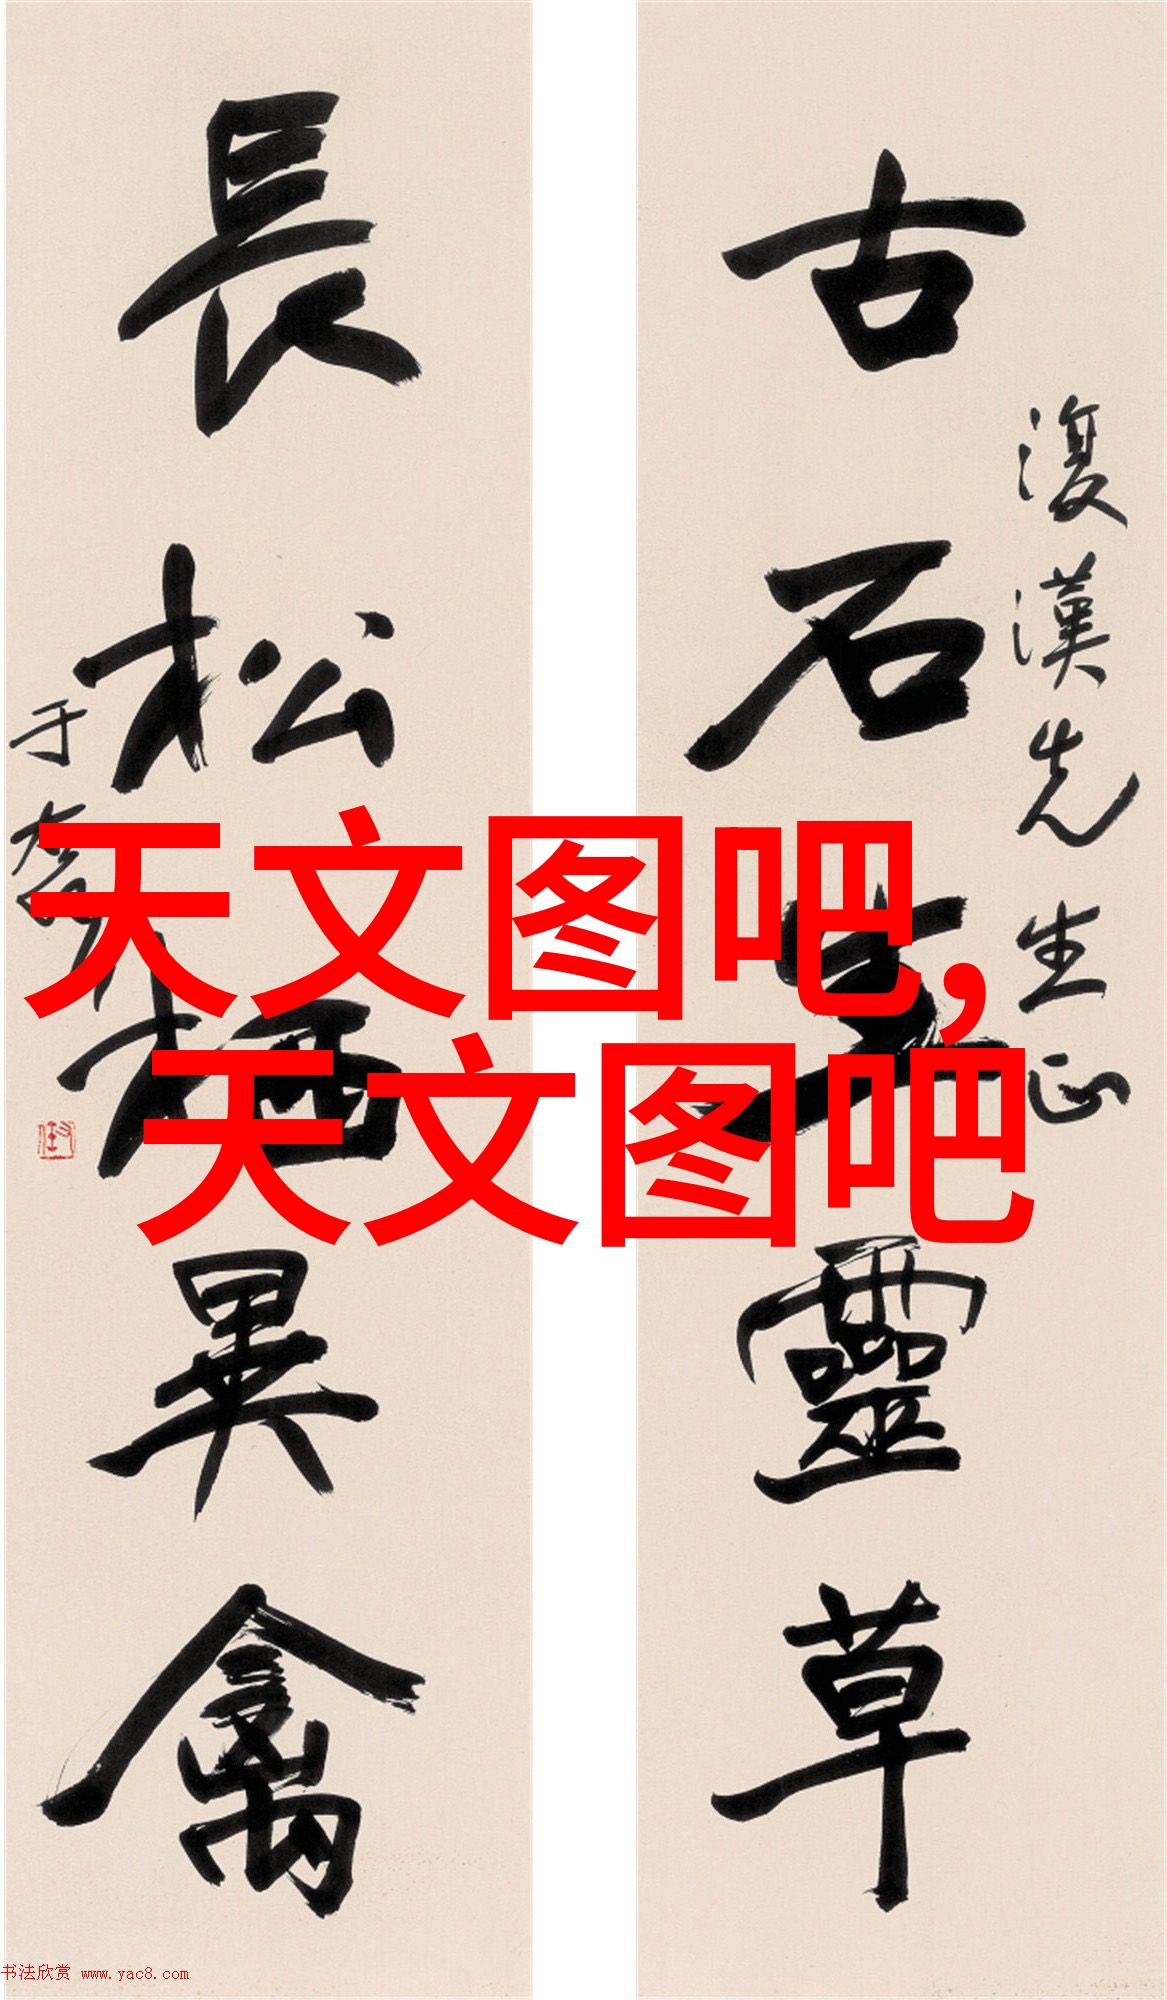 古石生靈草
復漢先生正
長松栖異禽
于右任
天文图吧,
天文图吧
书法欣赏 www.yac8.com